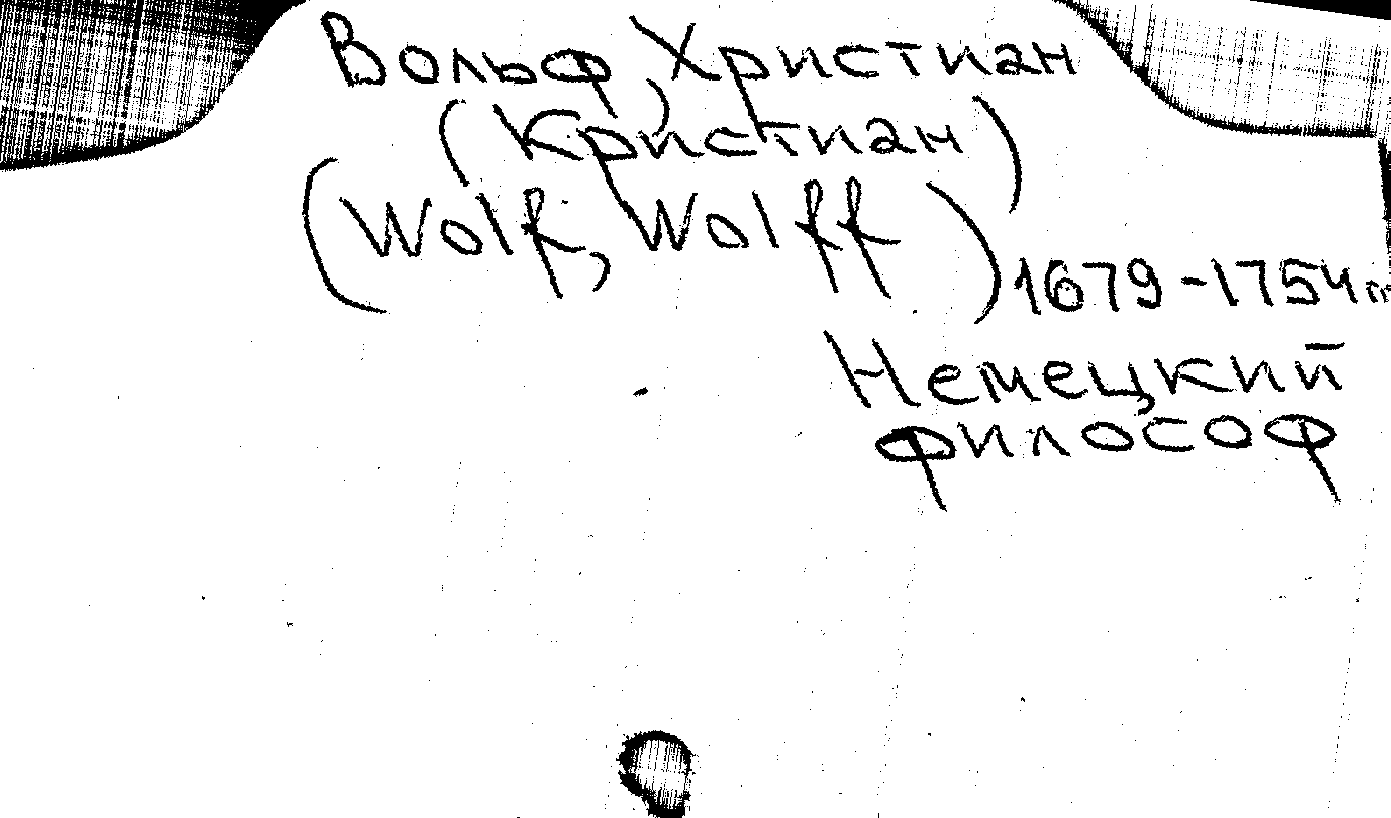 Вольф, Христиан
(Кристиан)
(Wolf, Wolff)
1679-1754 гг
Немецкий
философ